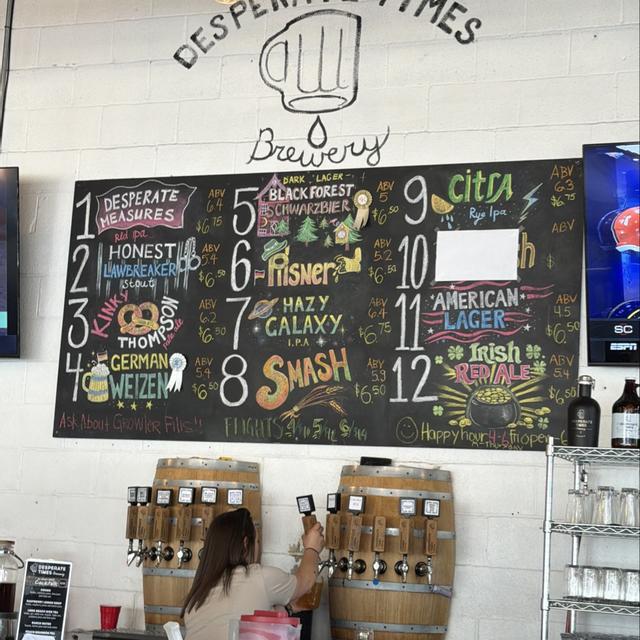 DESPERATE TIMES
Brewery
1 DESPERATE MEASURES
Red ipa
ABV 6.4
$6.75
2 HONEST
LAWBREAKER
stout
ABV 5.4
$6.50
3 KINKY
THOMPSON
ABV 6.2
$6.50
4 GERMAN
WEIZEN
ABV 5.4
$6.50
Ask About Growler Fills!!
5 DARK LAGER
BLACK FOREST
SCHWARZBIER
ABV 5
$6.50
6 Pilsner
ABV 5.2
$6.50
7 HAZY
GALAXY
I.P.A
ABV 6.4
$6.75
8 SMASH
ABV 5.9
$6.50
FLIGHTS
9 CITRA
Rye Ipa
ABV 6.3
$6.75
10 h
ABV
11 AMERICAN
LAGER
ABV 4.5
$6.50
12 Irish
RED ALE
ABV 5.4
$6.50
Happy hour 4-6
SC
ESPN
DESPERATE
TIMES Brewery